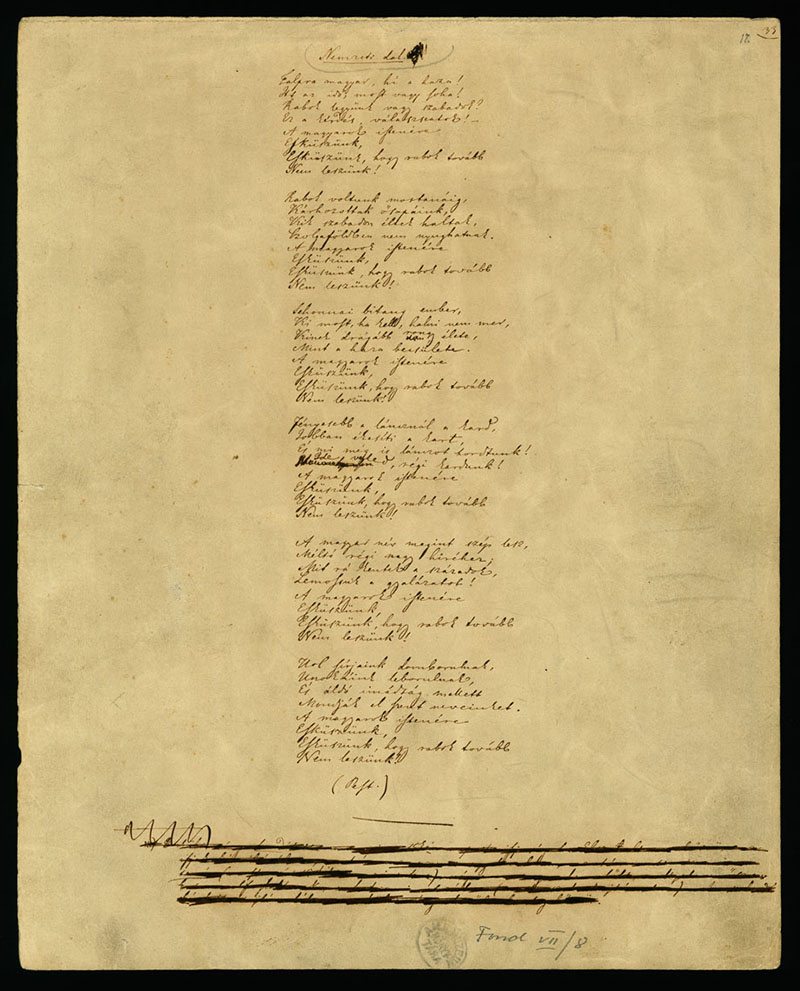 17. 33
Nemzeti dal
Talpra magyar, hí a haza!
Itt az idő, most vagy soha!
Rabok legyünk vagy szabadok?
Ez a kérdés, válasszatok! –
A magyarok istenére
Esküszünk,
Esküszünk, hogy rabok tovább
Nem leszünk!
Rabok voltunk mostanáig,
Kárhozottak ősapáink,
Kik szabadon éltek haltak,
Szolgaföldben nem nyughatnak.
A magyarok istenére
Esküszünk,
Esküszünk, hogy rabok tovább
Nem leszünk!
Sehonnai bitang ember,
Ki most, ha kell, halni nem mer,
Kinek drágább rongy élete,
Mint a haza becsülete.
A magyarok istenére
Esküszünk,
Esküszünk, hogy rabok tovább
Nem leszünk!
Fényesebb a láncznál a kard,
Jobban ékesíti a kart,
És mi még is lánczot hordtunk!
Ide veled, régi kardunk!
A magyarok istenére
Esküszünk,
Esküszünk, hogy rabok tovább
Nem leszünk!
A magyar név megint szép lesz,
Méltó régi nagy hiréhez;
Mit rá kentek a századok,
Lemossuk a gyalázatot!
A magyarok istenére
Esküszünk,
Esküszünk, hogy rabok tovább
Nem leszünk!
Hol sírjaink domborulnak,
Unokáink leborulnak,
És áldó imádság mellett
Mondják el szent neveinket.
A magyarok istenére
Esküszünk,
Esküszünk, hogy rabok tovább
Nem leszünk!
(Pest.)
Fond VII/8